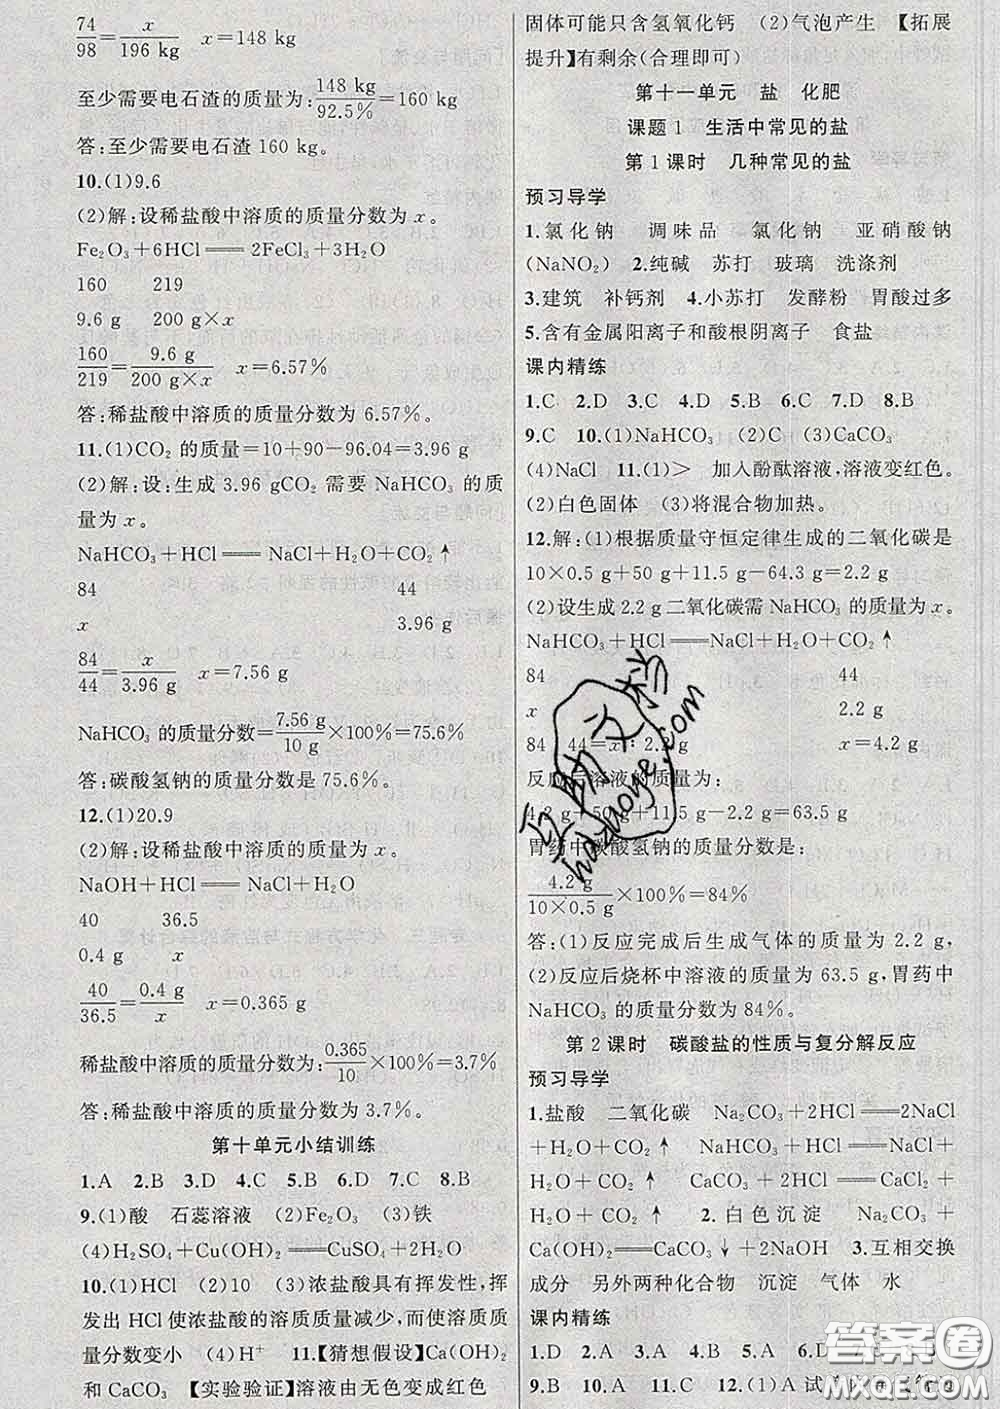 74/98=x/196 kg x=148 kg
至少需要电石渣的质量为:148 kg/92.5%=160 kg
答:至少需要电石渣160 kg。
10.(1)9.6
(2)解:设稀盐酸中溶质的质量分数为x。
Fe₂O₃+6HCl══2FeCl₃+3H₂O
160 219
9.6 g 200 g×x
160/219=9.6 g/200 g×x x=6.57%
答:稀盐酸中溶质的质量分数为6.57%。
11.(1)CO₂的质量=10+90-96.04=3.96 g
(2)解:设:生成3.96 gCO₂需要NaHCO₃的质
量为x。
NaHCO₃+HCl══NaCl+H₂O+CO₂↑
84 44
x 3.96 g
84/44=x/3.96 g x=7.56 g
NaHCO₃的质量分数=7.56 g/10 g×100%=75.6%
答:碳酸氢钠的质量分数是75.6%。
12.(1)20.9
(2)解:设稀盐酸中溶质的质量为x。
NaOH+HCl══NaCl+H₂O
40 36.5
0.4 g x
40/36.5=0.4 g/x x=0.365 g
稀盐酸中溶质的质量分数为:0.365/10×100%=3.7%
答:稀盐酸中溶质的质量分数为3.7%。
第十单元小结训练
1.A 2.B 3.D 4.C 5.B 6.D 7.C 8.B
9.(1)酸 石蕊溶液 (2)Fe₂O₃ (3)铁
(4)H₂SO₄+Cu(OH)₂══CuSO₄+2H₂O
10.(1)HCl (2)10 (3)浓盐酸具有挥发性,挥
发出HCl使浓盐酸的溶质质量减少,而使溶质质
量分数变小 (4)H⁺ 11.【猜想假设】Ca(OH)₂
和CaCO₃ 【实验验证】溶液由无色变成红色
固体可能只含氢氧化钙 (2)气泡产生 【拓展
提升】有剩余(合理即可)
第十一单元 盐 化肥
课题1 生活中常见的盐
第1课时 几种常见的盐
预习导学
1.氯化钠 调味品 氯化钠 亚硝酸钠
(NaNO₂) 2.纯碱 苏打 玻璃 洗涤剂
3.建筑 补钙剂 4.小苏打 发酵粉 胃酸过多
5.含有金属阳离子和酸根阴离子 食盐
课内精练
1.C 2.D 3.C 4.D 5.B 6.C 7.D 8.B
9.C 10.(1)NaHCO₃ (2)C (3)CaCO₃
(4)NaCl 11.(1)> 加入酚酞溶液,溶液变红色。
(2)白色固体 (3)将混合物加热。
12.解:(1)根据质量守恒定律生成的二氧化碳是
10×0.5 g+50 g+11.5 g-64.3 g=2.2 g
(2)设生成2.2 g二氧化碳需NaHCO₃的质量为x。
NaHCO₃+HCl══NaCl+H₂O+CO₂↑
84 44
x 2.2 g
84∶44=x∶2.2 g x=4.2 g
反应后溶液的质量为:
4.2 g+50 g+11.5 g-2.2 g=63.5 g
胃药中碳酸氢钠的质量分数是:
4.2 g/10×0.5 g×100%=84%
答:(1)反应完成后生成气体的质量为2.2 g,
(2)反应后烧杯中溶液的质量为63.5 g,胃药中
NaHCO₃的质量分数为84%。
第2课时 碳酸盐的性质与复分解反应
预习导学
1.盐酸 二氧化碳 Na₂CO₃+2HCl══2NaCl
+H₂O+CO₂↑ NaHCO₃+HCl══NaCl+
H₂O+CO₂↑ CaCO₃+2HCl══CaCl₂+
H₂O+CO₂↑ 2.白色沉淀 Na₂CO₃+
Ca(OH)₂══CaCO₃↓+2NaOH 3.互相交换
成分 另外两种化合物 沉淀 气体 水
课内精练
1.D 2.D 3.A 4.A 5.A 6.D
9.B 10.A 11.C 12.(1)A 试
互助文档
hdzuoye.com
答案圈
MXQE.COM